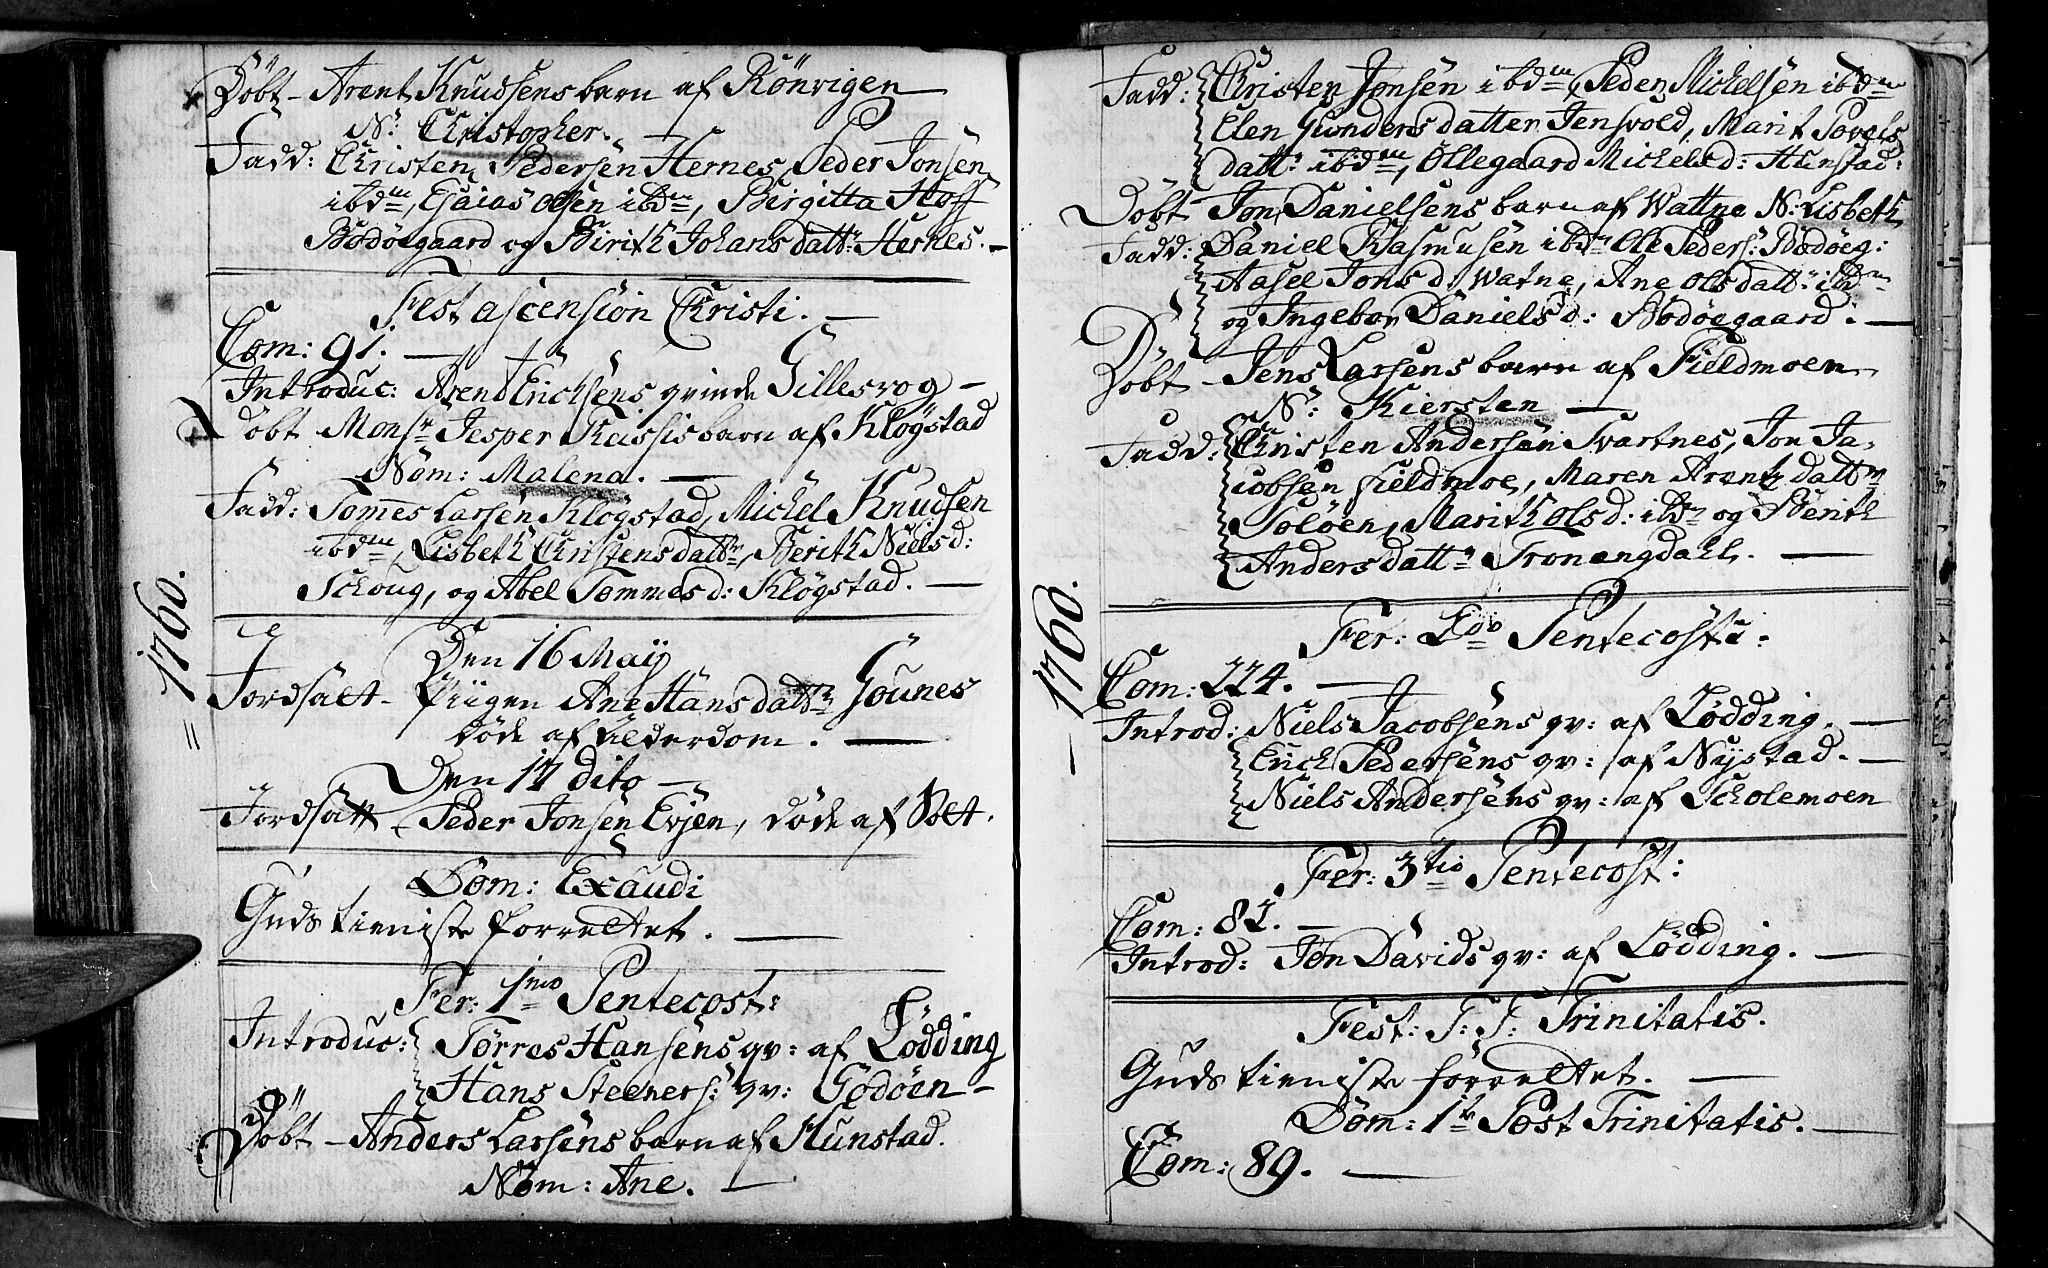 Döbt - Arent Knudsens barn af Rönvigen
N: Christopher. —
Fadd: Christen Pedersen Hernes, Peder Jonsen
ibdm, Esaias Olsen ibdm, Birgitta Hoff
Bodöegaard og Birith Johans dattr Hernes. —
Fest ascension Christi. —
Com: 91. —
Introduc: Arend Erichsens qvinde Gillesvog —
Döbt Monsr Jesper barn af Klögstad
Nom: Malena. —
Fadd: Tom̅es Larsen Klogstad, Michel Knudsen
ibdm, Lisbeth Christensdattr, Berith Niels d:
Schoug, og Abel Tommes d: Klögstad. —
1760.
Den 16 Maij
Jordsatt - Piigen Ane Hansdattr Gounes
döde af Alderdom. —
Den 17 dito —
Jordsatt Peder Jonsen Evjen, döde af
Dom: Exaudi
Guds tieniste forrettet. —
Fer: 1mo Pentecost:
Introduc: Tørres Hansens qv: af Lödding
Hans Steeners: qv: Godöen —
Döbt - Anders Larsens barn af Hunstad.
Nom: Ane. —
Fadd: Christen Jonsen ibdm, Peder Michelsen ibdm
Elen Gunders datter Jensvold, Marit Povels
datt: ibdm, Ollegaard Michels d: Hunstad:
Döbt Jon Danielsens barn af Wattne N: Lisbeth
Fadd: Daniel Rasmusen ibdm Ole Peders: Bodöeg:
Aasel Jons d: Watne, Ane Olsdattr ibdm
og Ingebor Daniels d: Bodöegaard. —
Döbt - Jens Larsens barn af Fieldmoen
N: Kiersten —
Fadd: Christen Andersen Svartnes, Jon Ja-
cobsen Fieldmoe, Maren Arentz dattr
Soløen, Marith Ols d: ibdm og Berith
Anders dattr Tronengdahl. —
1760.
Fer: 2do Pentecosti:
Com: 224. —
Introd: Niels Jacobsens qv: af Lødding. —
Erich Pedersens qv: af Nystad. —
Niels Andersens qv: af Scholemoen
Fer: 3tio Pentecost:
Com: 82. —
Introd: Jon Davids qv: af Lödding. —
Fest: S: S: Trinitatis.
Guds tieniste forrettet. —
Dom: 1te Post Trinitatis. —
Com: 89. —